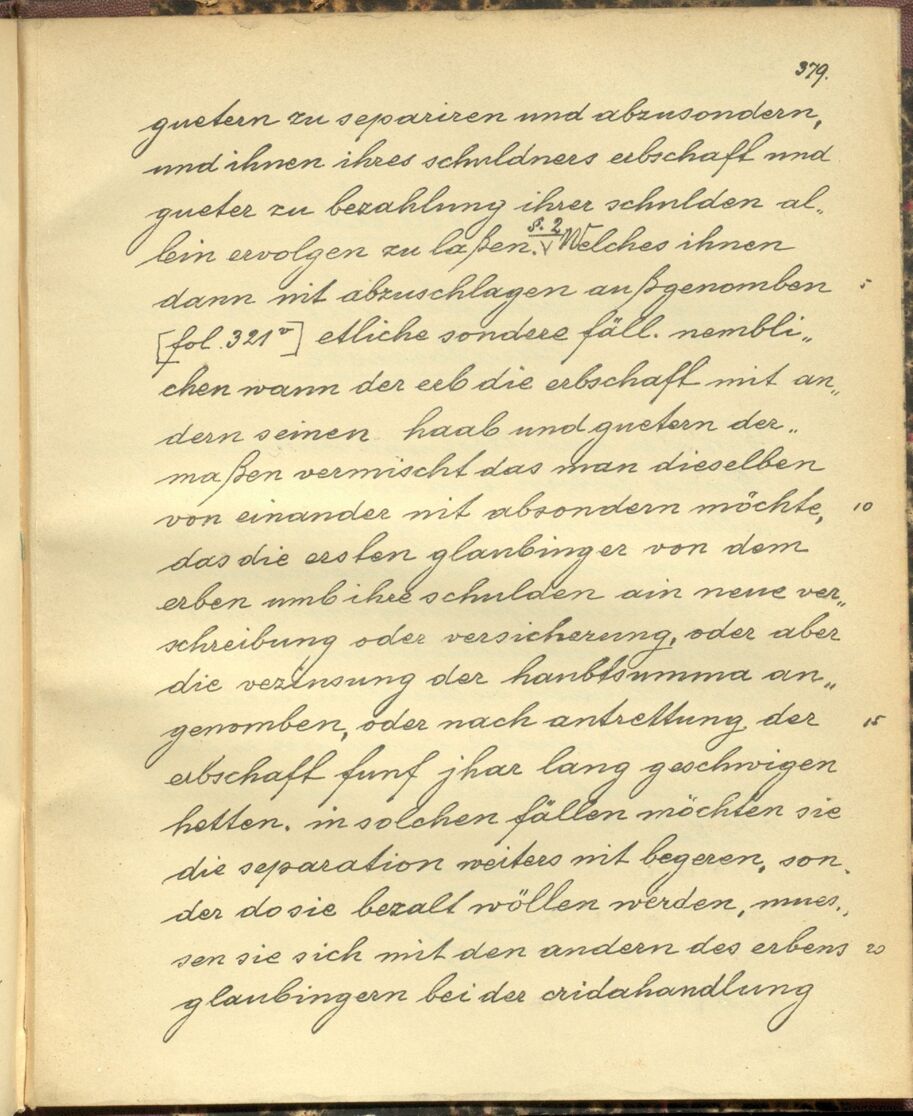 379.
guetern zu separiren und abzusondern,
und ihnen ihres schuldners erbschaft und
gueter zu bezahlung ihrer schulden al„
lein ervolgen zu laßen. §. 2 Welches ihnen
dann nit abzuschlagen außgenomben 5
[fol. 321v] etliche sondere fäll. nembli„
chen wann der erb die erbschaft mit an„
dern seinen haab und guetern der„
maßen vermischt das man dieselben
von einander nit absondern möchte, 10
das die ersten glaubinger von dem
erben umb ihre schulden ain neue ver„
schreibung oder versicherung, oder aber
die vezinsung der haubtsumma an„
genomben, oder nach antrettung der 15
erbschaft funf jhar lang geschwigen
hetten. in solchen fällen möchten sie
die separation weiters nit begeren, son„
der do sie bezalt wöllen werden, mues„
sen sie sich mit den andern des erbens 20
glaubingern bei der cridahandlung